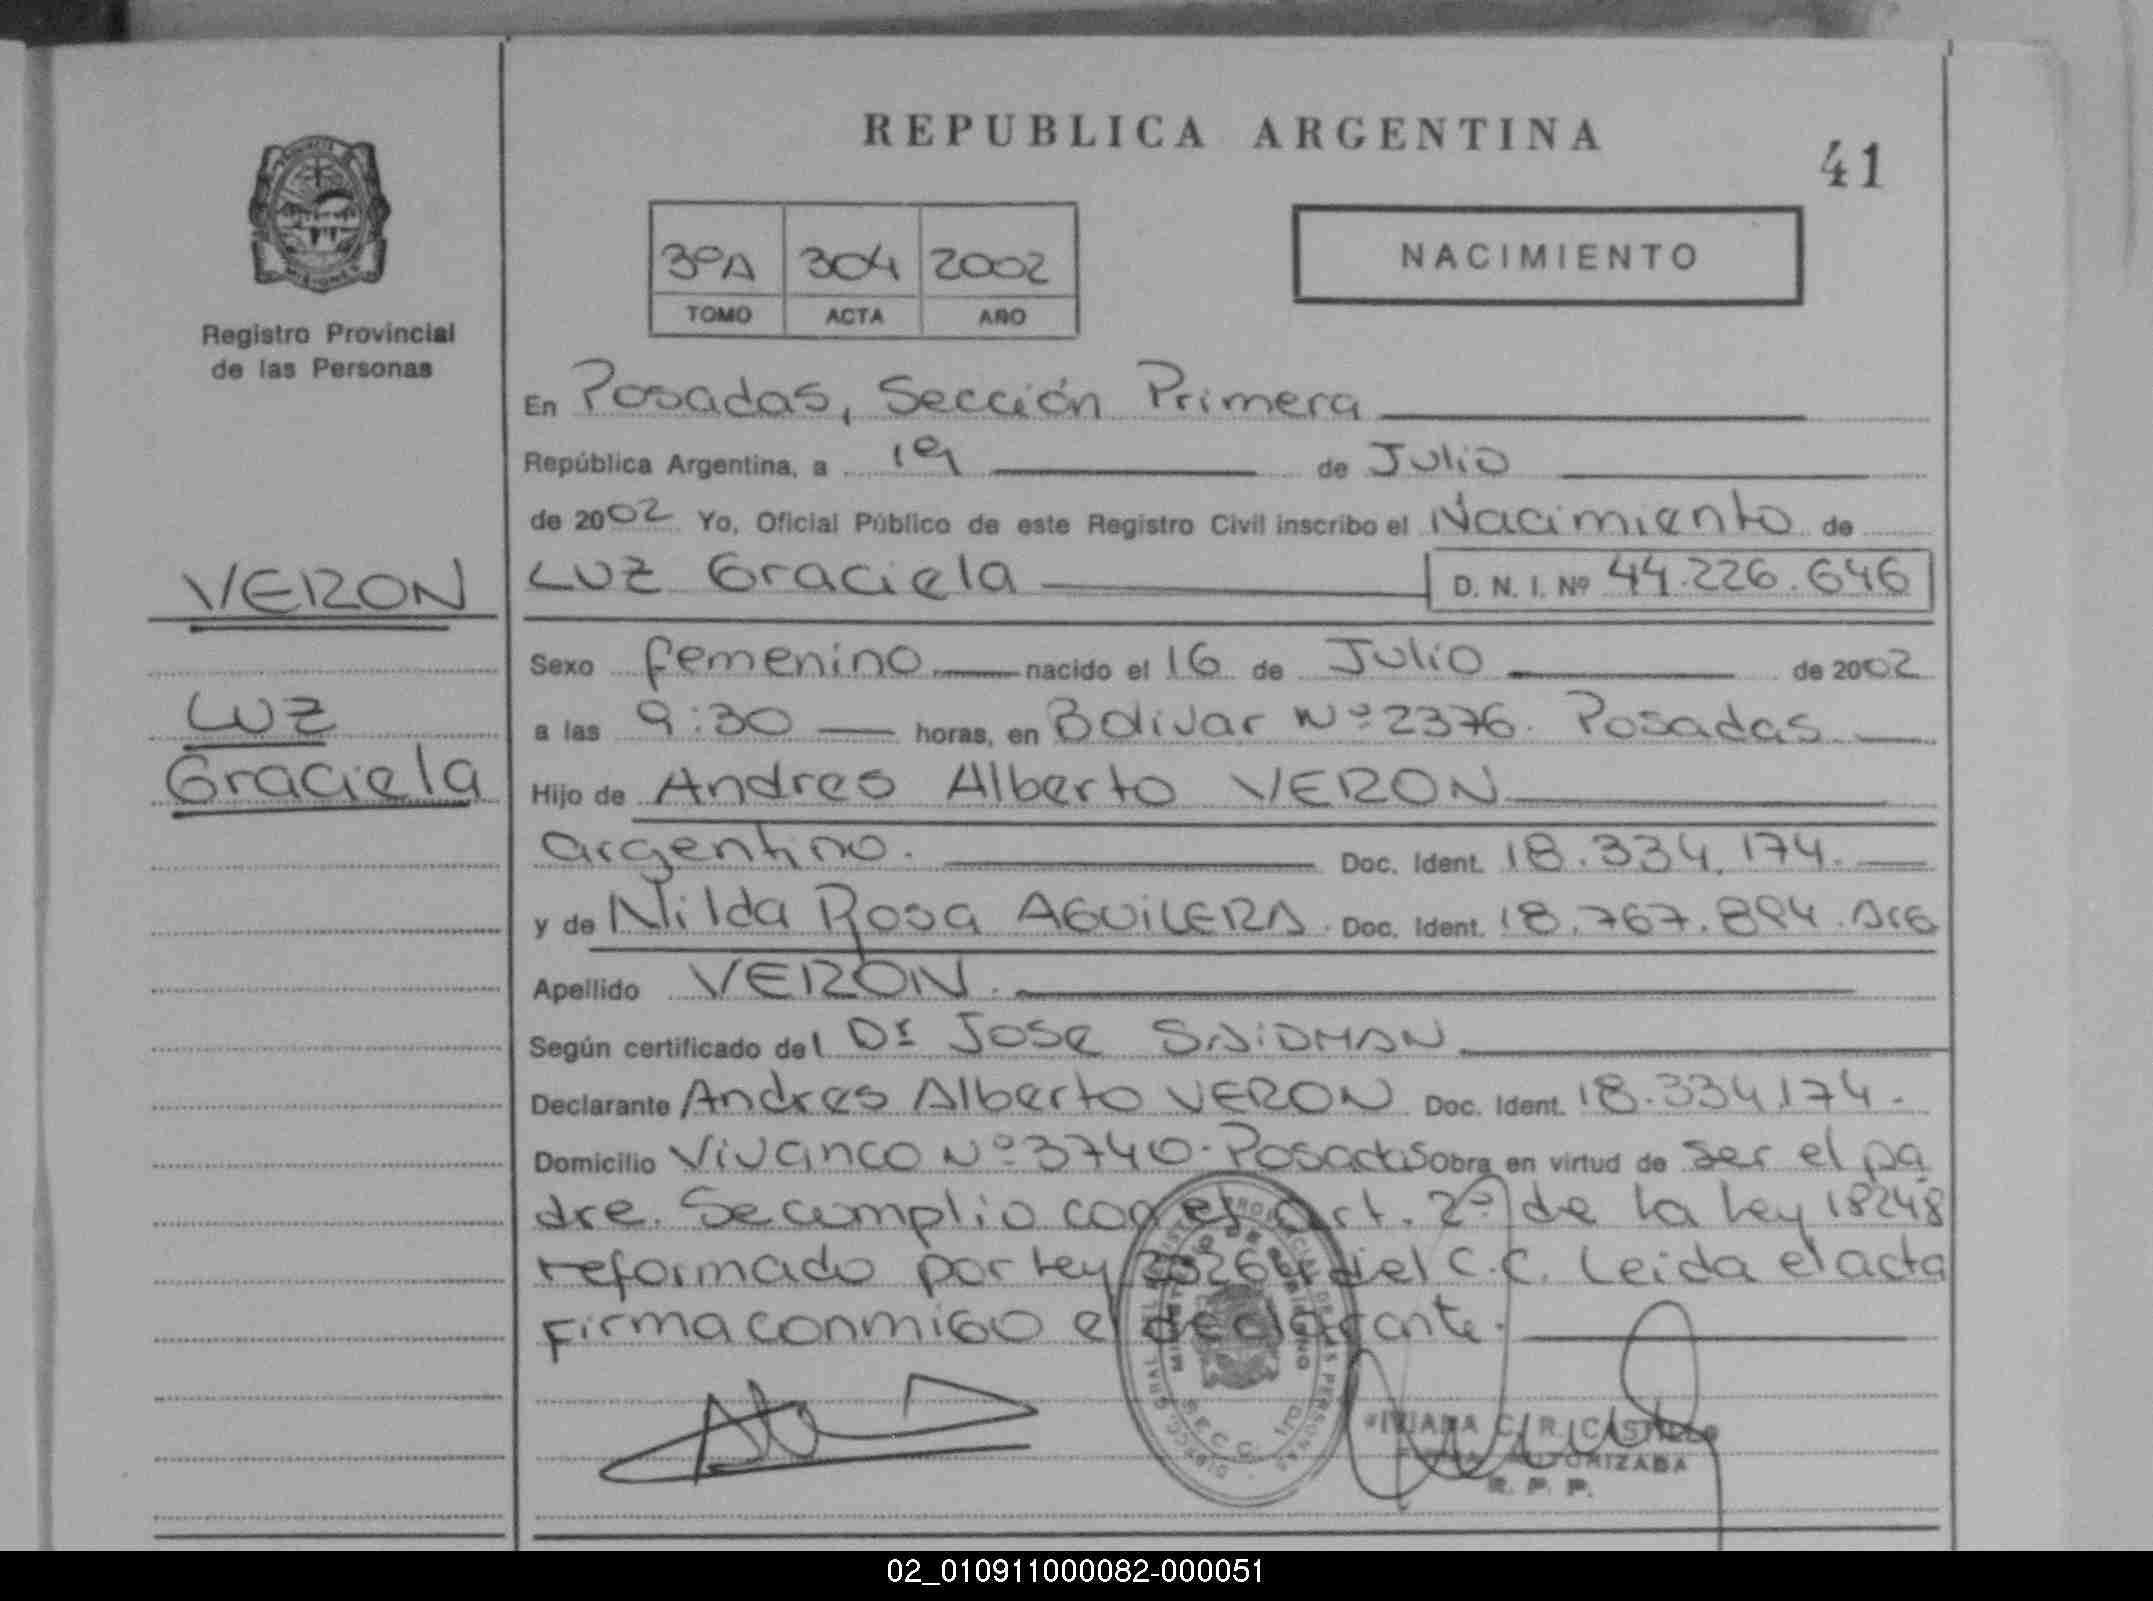 REPUBLICA ARGENTINA
41
3ºA 304 2002
TOMO ACTA AÑO
NACIMIENTO
Registro Provincial
de las Personas
VERON
Luz
Graciela
En Posadas, Sección Primera
República Argentina, a 19 de Julio
de 2002 Yo, Oficial Público de este Registro Civil inscribo el Nacimiento de
Luz Graciela D. N. I. Nº 44.226.646
Sexo femenino nacido el 16 de Julio de 2002
a las 9:30 horas, en Bolivar Nº 2376. Posadas
Hijo de Andres Alberto VERON
argentino. Doc. Ident. 18.334.174.
y de Nilda Rosa AGUILERA. Doc. Ident. 18.767.894. Arg
Apellido VERON.
Según certificado del Dr Jose SAIDMAN
Declarante Andres Alberto VERON Doc. Ident. 18.334.174.
Domicilio Vivanco Nº 3740. Posadas Obra en virtud de ser el pa
dre. Se cumplio con el art. 2º de la Ley 18248
reformado por Ley del C.C. Leida el acta
firma conmigo el declarante.
MINISTERIO DE GOBIERNO
SECC. 1ra.
C. R. CASTILLO
AUTORIZADA
R. P. P.
02_010911000082-000051